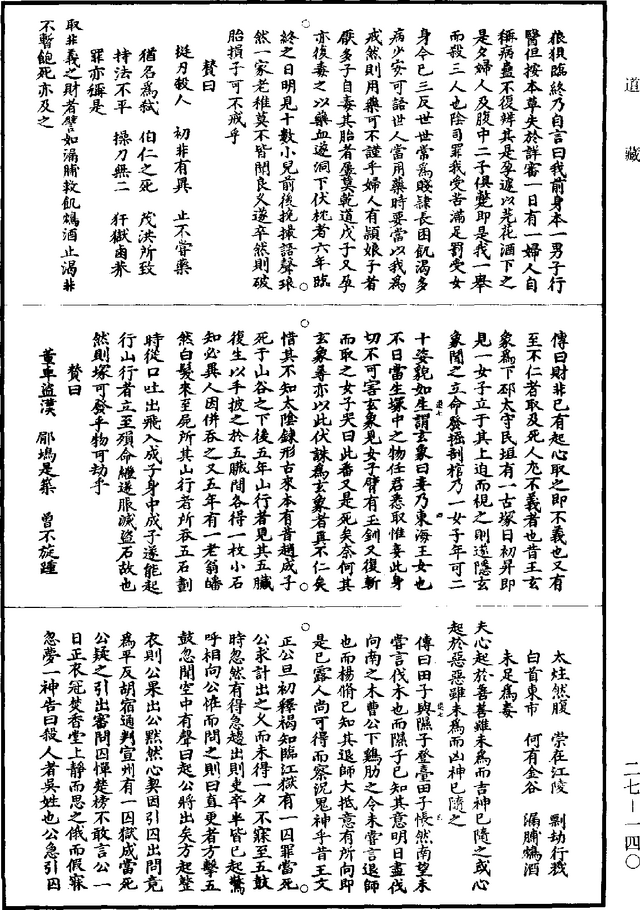 道藏
狼狽臨終乃自言曰我前身本一男子行
醫但按本草失於詳審一日有一婦人自
稱病蠱不復辨其是孕遽以芫花酒下之
是夕婦人及腹中二子俱斃即是我一舉
而殺三人也陰司罪我受苦滿足罰受女
身今已三反世世當為賤隸長困飢渴多
病少安可語世人當用藥時要當以我為
戒然則用藥可不謹乎婦人有頴娘子者
厭多子自毒其胎者屢矣乾道戊子又孕
亦復毒之以藥血遂洞下伏枕者六年臨
終之日明見十數小兒前後挽撮語聲琅
然一家老稚莫不皆聞良久遂卒然則破
胎損子可不戒乎
贊曰
挺刃殺人 初非有異 止不嘗藥
猶名為弒 伯仁之死 茂洪所致
持法不平 操刀無二 犴獄鹵莽
罪亦稱是
取非義之財者譬如漏脯救飢鴆酒止渴非
不暫飽死亦及之
傳曰財非己有起心取之即不義也又有
至不仁者取及死人尤不義者也昔王玄
象為下邳太守民垣有一古塚日初昇即
見一女子立于其上迫而視之則遂隱玄
象聞之立命發掘剖棺乃一女子年可二
十姿貌如生謂玄象曰妾乃東海王女也
不日當生塚中之物任君悉取惟妾此身
切不可害玄象見女子臂有玉釧又復斬
而取之女子哭曰此番又是死矣奈何其
玄象尋亦以此伏誅為玄象者真不仁矣
惜其不知太陰鍊形古來本有昔趙成子
死于山谷之下後五年山行者見其五臟
復生以手披之於五臟間各得一枚小石
知必異人因併吞之又五年有一老翁皤
然白髮來至屍所其山行者所吞五石劃
時從口吐出飛入成子身中成子遂能起
行山行者立至殞命繼遂脹滅盜石故也
然則塚可發乎物可劫乎
贊曰
董卓盜漢 郿塢是築 曾不旋踵
太炷然腹 崇在江陵 剽劫行戮
白首東市 何有金谷 漏脯鴆酒
未足為毒
夫心起於善善雖未為而吉神已隨之或心
起於惡惡雖未為而凶神已隨之
傳曰田子與隰子登臺田子悵然南望未
嘗言伐木也而隰子已知其意明日盡伐
向南之木曹公下鷄肋之令未嘗言退師
也而楊脩已知其退師大抵意有所向即
是已露人尚可得而察況鬼神乎昔王文
正公旦初釋褐知臨江獄有一囚罪當死
公求計出之久而未得一夕不寐至五鼓
時忽然有得急趨出則吏卒半皆已起驚
呼相向公恠而問之則曰直更者方擊五
鼓忽聞空中有聲曰起公將出矣方起整
衣則公果出公黙然心契因引囚出問竟
為平反胡宿通判宣州有一囚獄成當死
公疑之引出審問囚憚楚榜不敢言公一
日正衣冠焚香堂上靜而思之俄而假寐
忽夢一神告曰殺人者吳姓也公急引囚
二七—一四〇